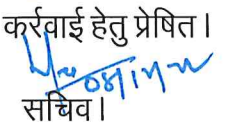 कर्रवाई हेतु प्रेषित।
सचिव।